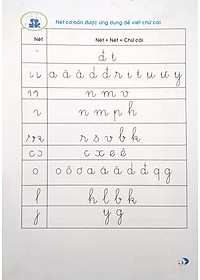 Nét cơ bản được ứng dụng để viết chữ cái
Nét
Nét + Nét = Chữ cái
đ t
a ă â d đ r i t u ư y
n m v
n m p h
r s v b k
c x e ê
o ô ơ a ă â d đ q g
h l b k
y g